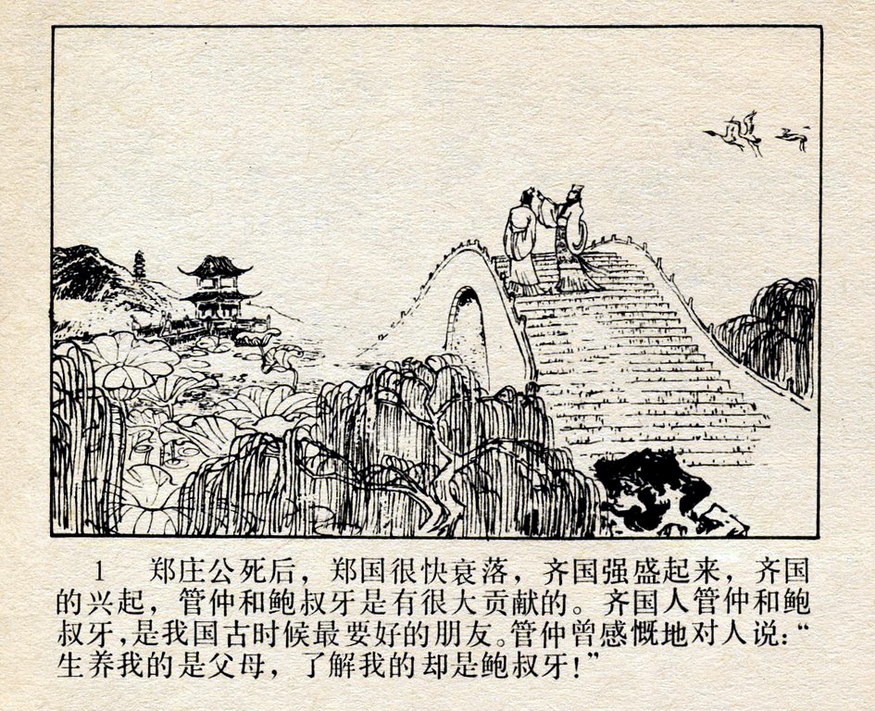 1 郑庄公死后，郑国很快衰落，齐国强盛起来，齐国
的兴起，管仲和鲍叔牙是有很大贡献的。齐国人管仲和鲍
叔牙，是我国古时候最要好的朋友。管仲曾感慨地对人说：“
生养我的是父母，了解我的却是鲍叔牙！”